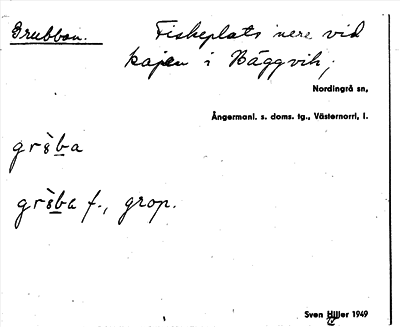 Grubban.
Fiskeplats nere vid
kajen i Häggvik,
Nordingrå sn,
Ångermanl. s. doms. tg., Västernorrl. l.
grò̀ba
grò̀ba f., grop.
Sven Hiller 1949